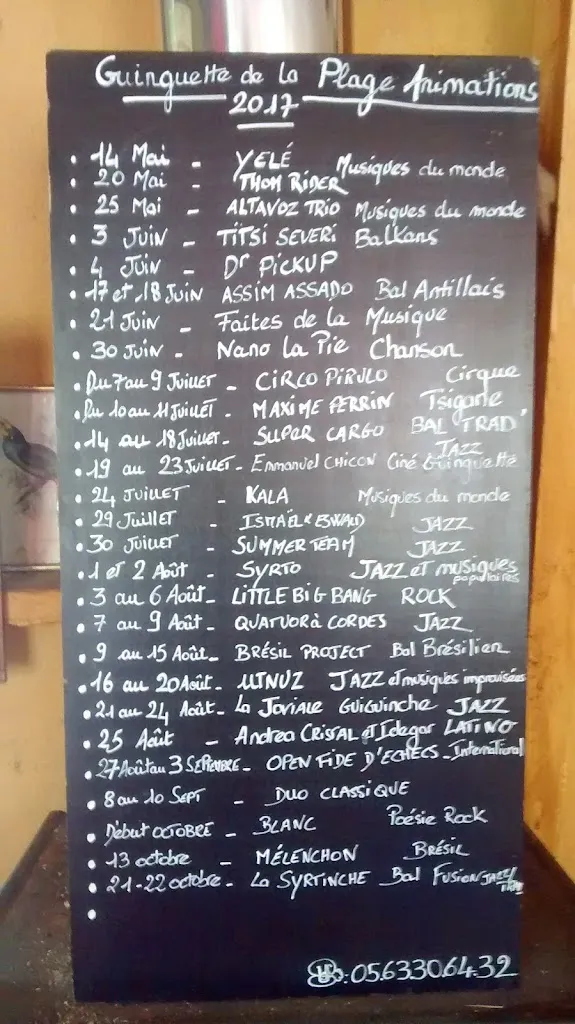 Guinguette de la Plage Animations
2017
• 14 Mai - YELÉ Musiques du monde
• 20 Mai - THOM RIDER
• 25 Mai - ALTAVOZ TRIO Musiques du monde
• 3 JUIN - TITSI SEVERI Balkans
• 4 JUIN - Dr PICKUP
• 17 et 18 JUIN ASSIM ASSADO Bal Antillais
• 21 JUIN - Faites de la Musique
• 30 JUIN - Nano La Pie Chanson
• Du 7 au 9 JUILLET - CIRCO PIRULO Cirque
• Du 10 au 11 JUILLET - MAXIME PERRIN Tsigane
• 14 au 18 JUILLET - SUPER CARGO BAL TRAD'
JAZZ
• 19 au 23 JUILLET - Emmanuel CHICON Ciné Guinguette
• 24 JUILLET - KALA Musiques du monde
• 29 Juillet - JAZZ
• 30 JUILLET - SUMMER TEAM JAZZ
• 1 et 2 Août - SYRTO JAZZ et musiques
populaires
• 3 au 6 Août - LITTLE BIG BANG ROCK
• 7 au 9 Août - QUATUOR à CORDES JAZZ
• 9 au 15 Août - BRÉSIL PROJECT Bal Brésilien
• 16 au 20 Août - JAZZ et musiques improvisées
• 21 au 24 Août - La JOVIALE GUIGUINCHE JAZZ
• 25 Août - Andrea CRISTAL et Idegar LATINO
• 27 Août au 3 SEPTEMBRE - OPEN FIDE D'ECHECS - International
• 8 au 10 SEPT - DUO CLASSIQUE
• Début OCTOBRE - BLANC Poésie Rock
• 13 octobre - MÉLENCHON BRÉSIL
• 21-22 octobre - La SYRTINCHE Bal FUSION JAZZ/
TRAD
•
: 05.63.30.64.32